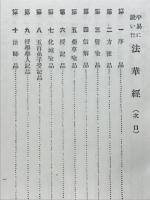 平易に
説いた 法華経 (次目)
第一 序品
第二 方便品
第三 譬喩品
第四 信解品
第五 薬草喩品
第六 授記品
第七 化城喩品
第八 五百弟子受記品
第九 授学無学人記品
第十 法師品